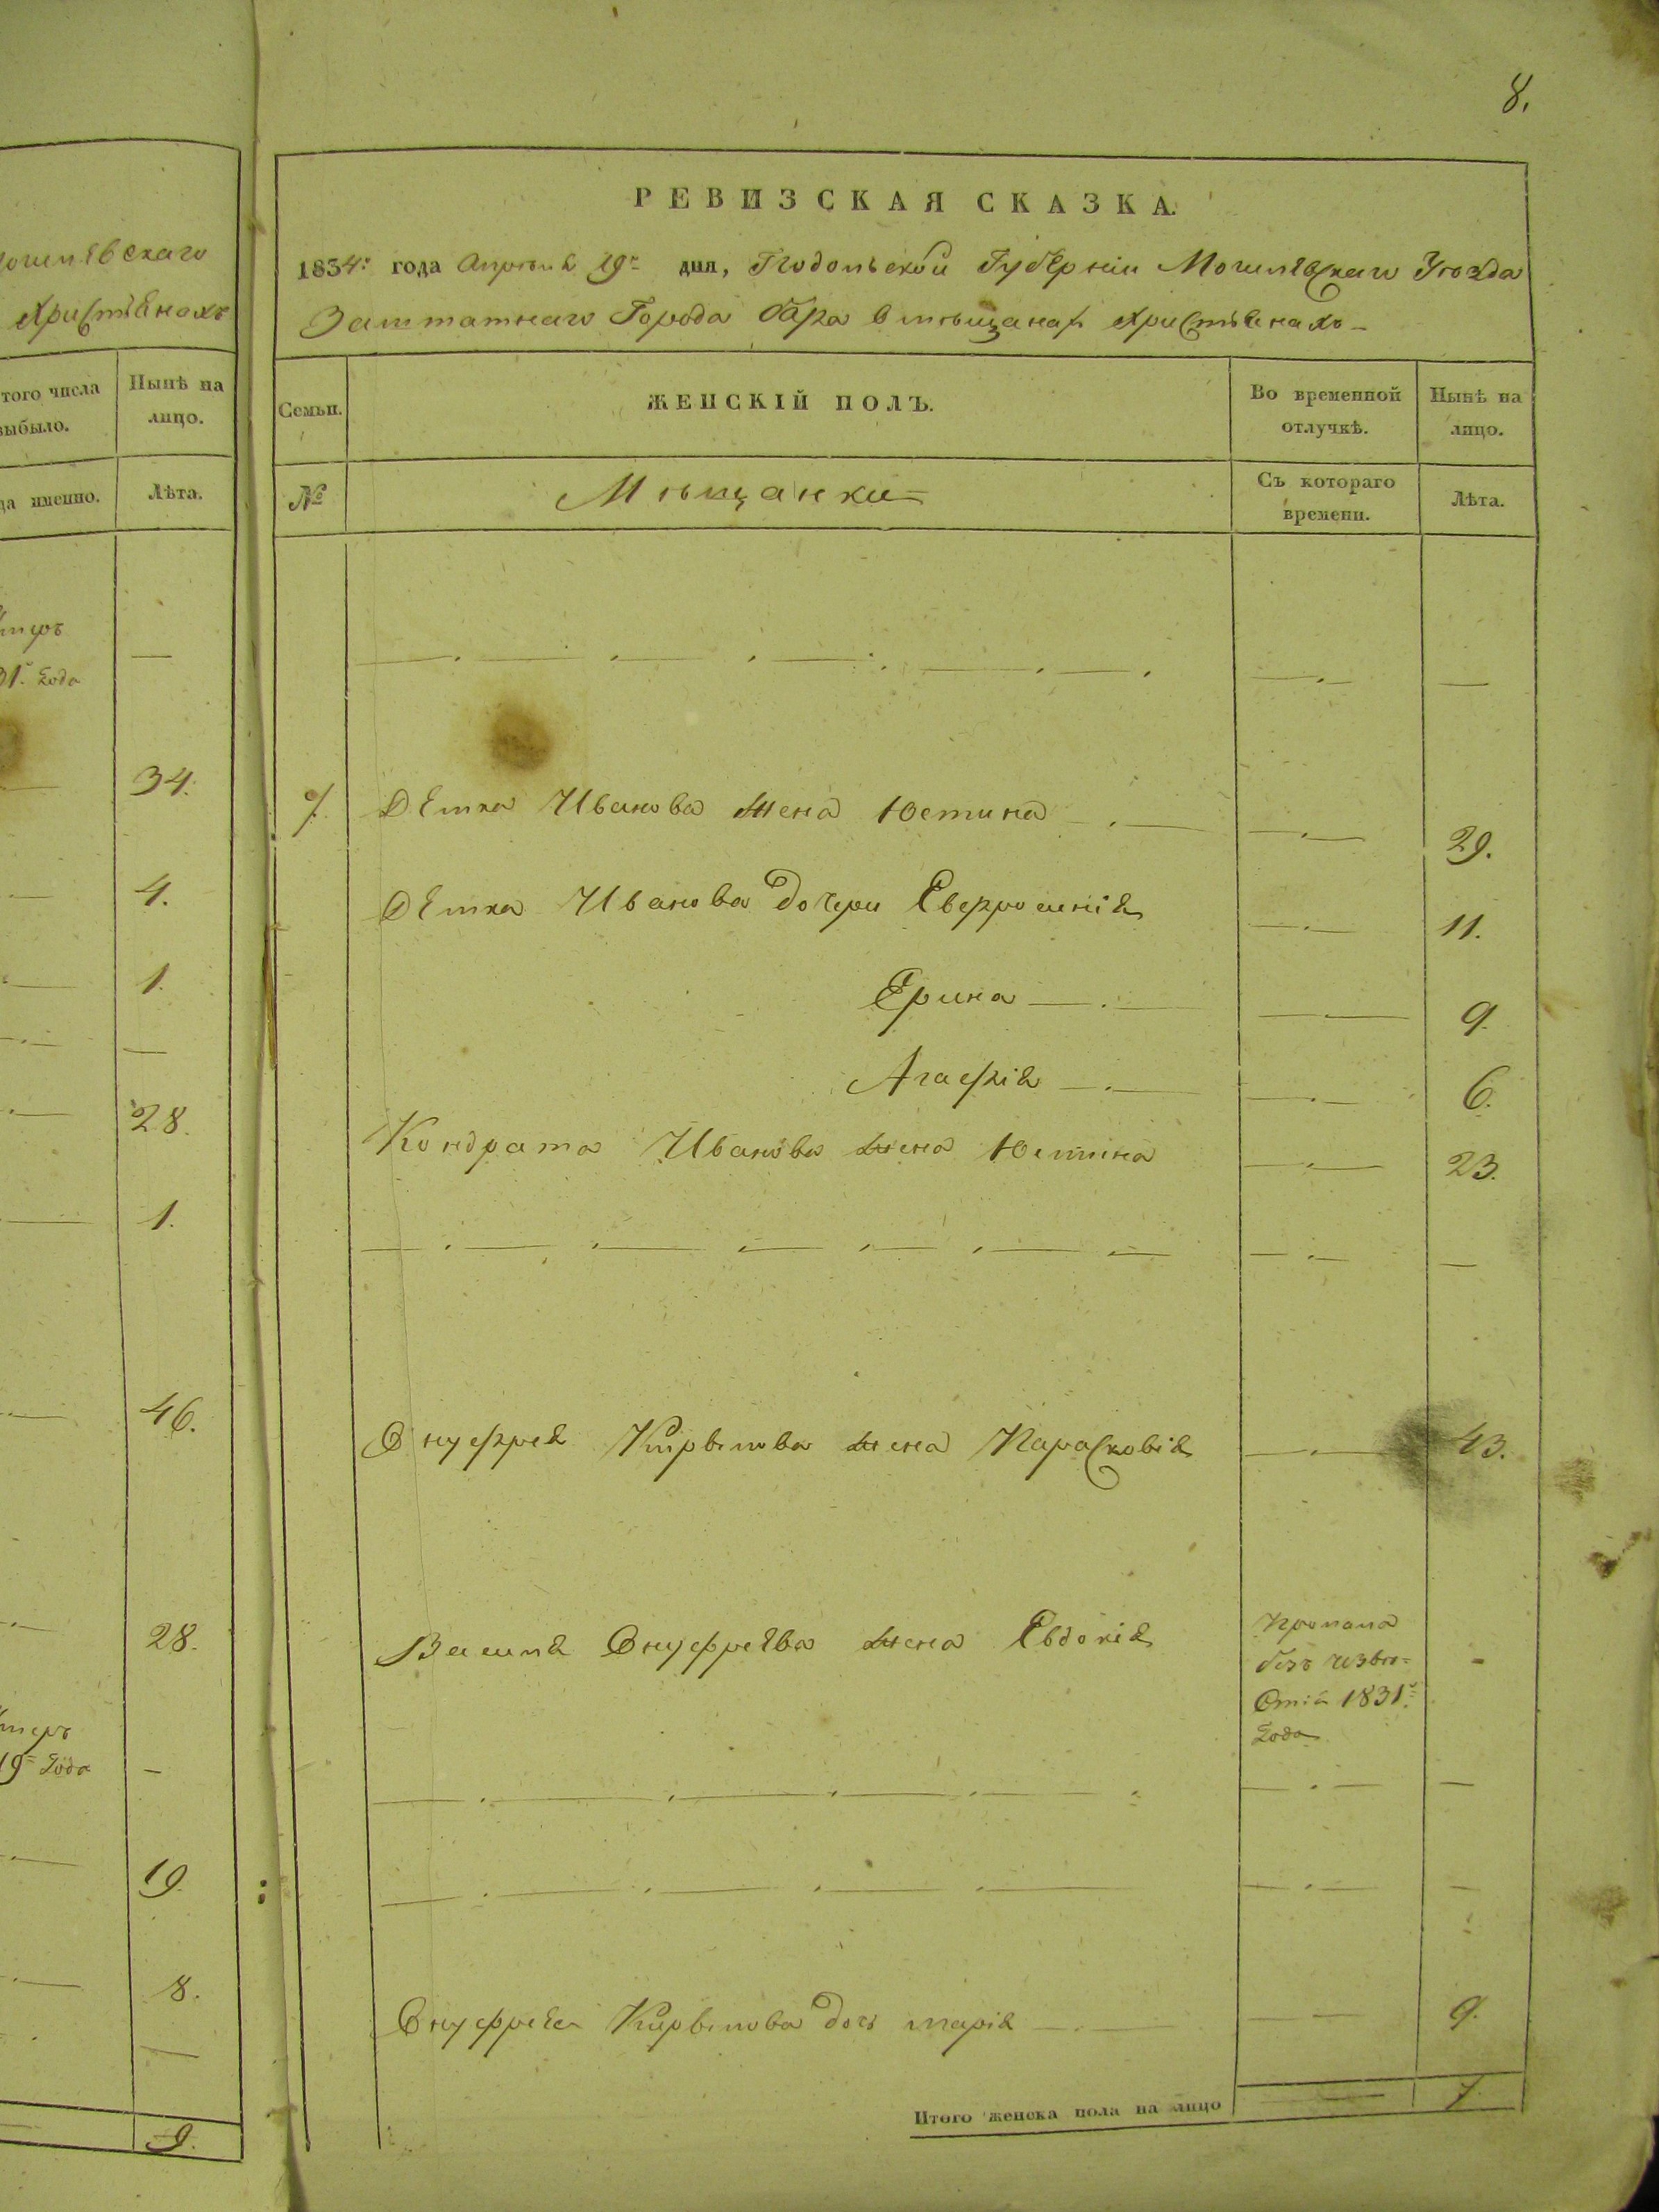 8.
РЕВИЗСКАЯ СКАЗКА.
1834: года Апрѣля 19 дня, Подольской Губерніи Могилевскаго Уѣзда
Заштатнаго Города Бара в мѣщанах христіянахъ
христіянахъ
того числа
выбыло.
Нынѣ на
лицо.
Семьи.
ЖЕНСКІЙ ПОЛЪ.
Во временной
отлучкѣ.
Нынѣ на
лицо.
да именно.
Лѣта.
№
Мѣщанки
Съ котораго
времени.
Лѣта.
31. Года
34.
7. Иванова жена Юстина 29.
4.
Иванова дочери Евфросинія 11.
1.
Ерина 9.
Агафія 6.
28.
Кондрата Иванова жена Юстина 23.
1.
46.
Онуфрея Кирилова жена Парасковія 43.
28.
Василя Онуфреева жена Евдокія
Пропала
безъ извѣ=
стія 1831
Года
19 Года
19.
8.
Онуфрея Кирилова дочь марія 9.
Итого женска пола на лицо 7.
9.